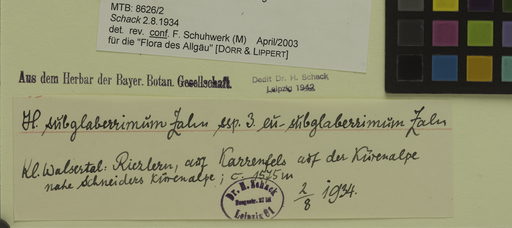 MTB: 8626/2
Schack 2.8.1934
det. rev. conf. F. Schuhwerk (M) April/2003
für die "Flora des Allgäu" [DÖRR & LIPPERT]
Aus dem Herbar der Bayer. Botan. Gesellschaft.
Dedit Dr. H. Schack
Leipzig 1942
H. subglaberrimum Zahn ssp. 3. eu-subglaberrimum Zahn
Kl. Walsertal: Riezlern, auf Karrenfels auf der Kürenalpe
nahe Schneiders Kürenalpe; c. 1575 m
2/8 1934.
Dr. H. Schack
Leipzig C1